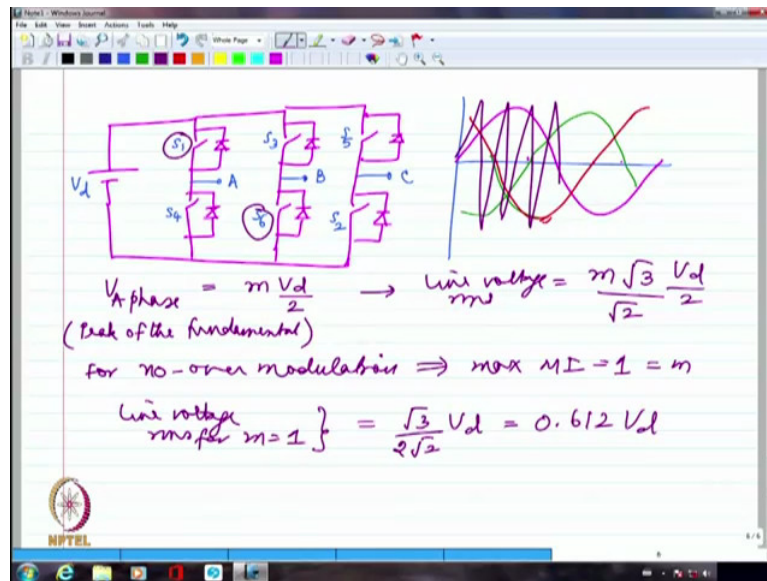 Note1 - Windows Journal
File Edit View Insert Actions Tools Help
Whole Page
S1 S3 S5
Vd A B C
S4 S6 S2
VA phase = m Vd/2 → Line voltage rms = m√3/√2 Vd/2
(Peak of the fundamental)
For no-over modulation ⇒ max MI = 1 = m
Line voltage rms for m = 1 } = √3/2√2 Vd = 0.612 Vd
NPTEL
6/6
6